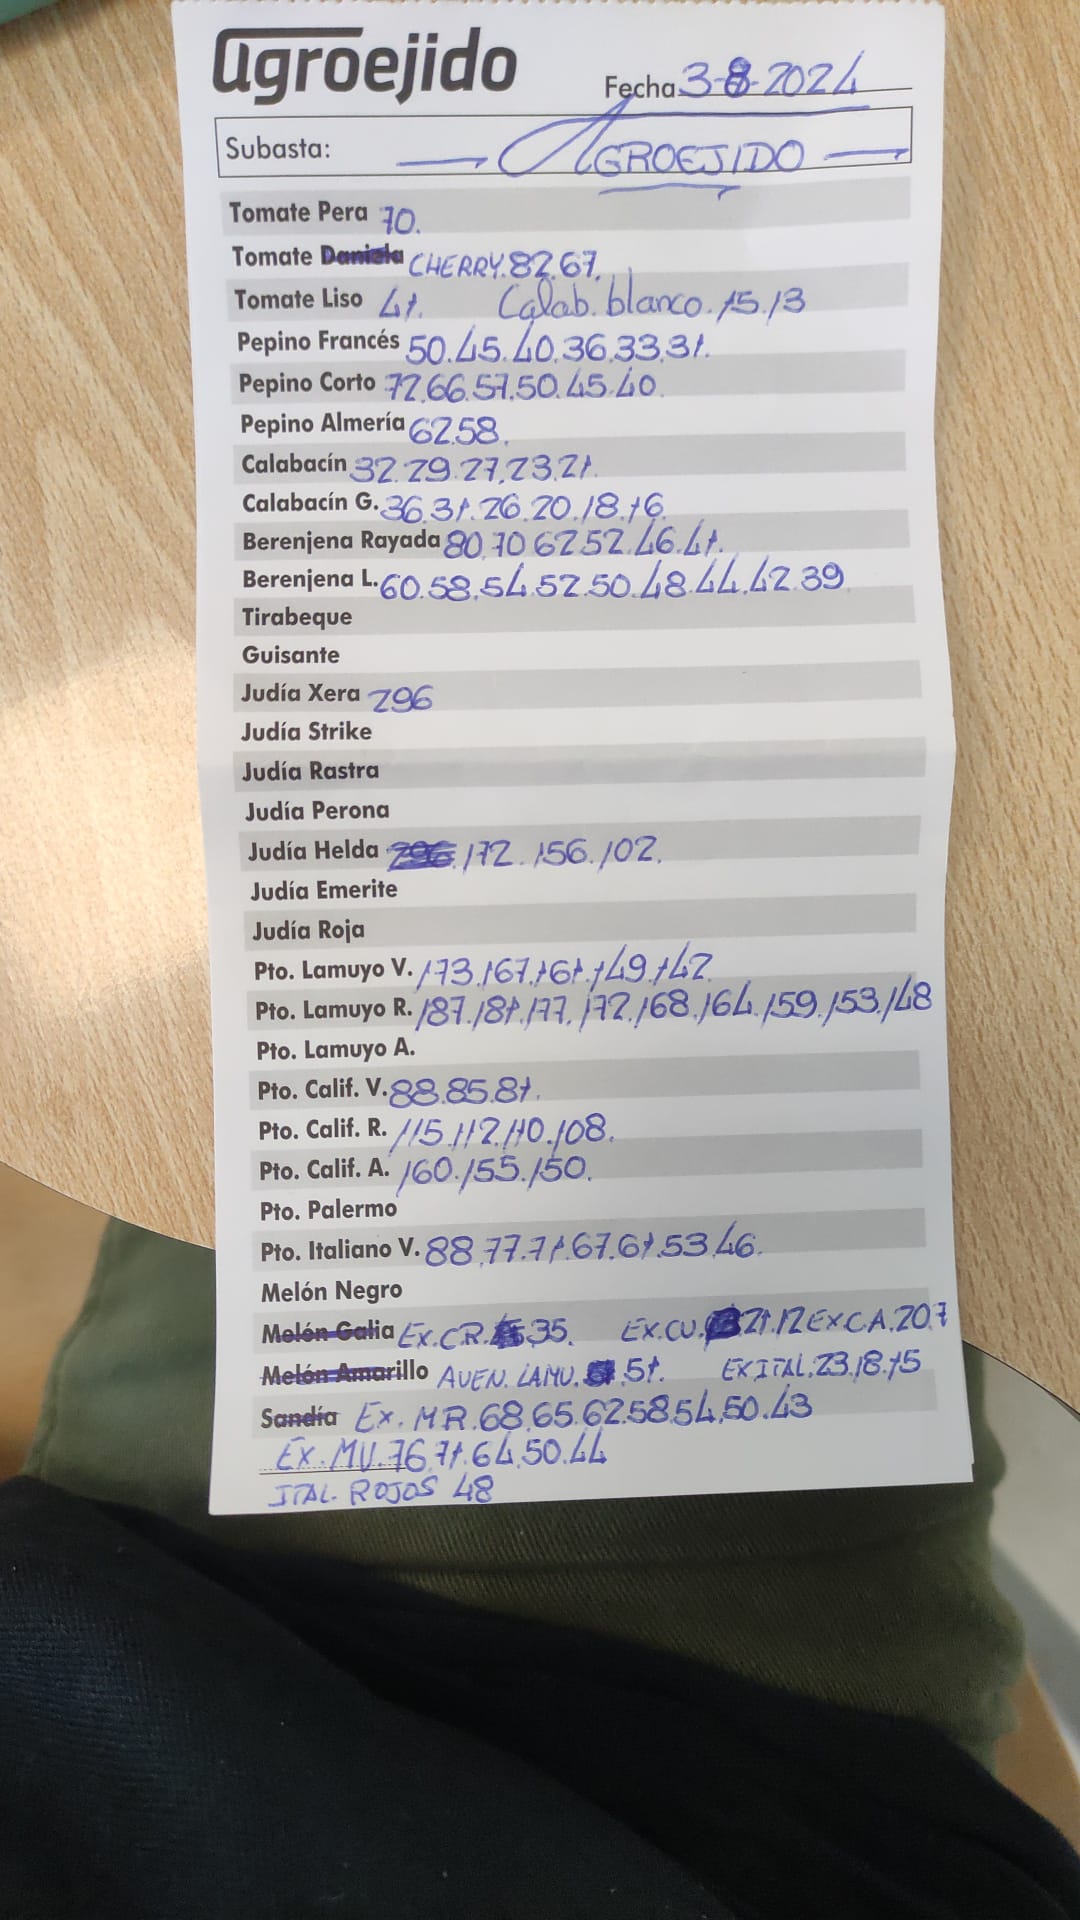 agroejido
Fecha 3-8-2024
Subasta: AGROEJIDO
Tomate Pera 70.
Tomate Daniela CHERRY.82.67.
Tomate Liso 41. Calab. blanco. 15.13
Pepino Francés 50.45.40.36.33.31.
Pepino Corto 72.66.57.50.45.40.
Pepino Almería 62.58.
Calabacín 32.29.27.23.21.
Calabacín G. 36.31.26.20.18.16.
Berenjena Rayada 80.70.62.52.46.41.
Berenjena L. 60.58.54.52.50.48.44.42.39
Tirabeque
Guisante
Judía Xera 296
Judía Strike
Judía Rastra
Judía Perona
Judía Helda 296.172.156.102.
Judía Emerite
Judía Roja
Pto. Lamuyo V. 173.167.161.149.142
Pto. Lamuyo R. 187.181.177.172.168.164.159.153.148
Pto. Lamuyo A.
Pto. Calif. V. 88.85.81.
Pto. Calif. R. 115.112.110.108.
Pto. Calif. A. 160.155.150.
Pto. Palermo
Pto. Italiano V. 88.77.71.67.61.53.46.
Melón Negro
Melón Galia EX.CR. 35. EX.CU. 21.12 EXCA.20.7
Melón Amarillo AVEN. LAMU. .51. EXITAL.23.18.15
Sandía EX. MR.68.65.62.58.54.50.43
EX.MV.76.71.64.50.44
ITAL. ROJOS 48